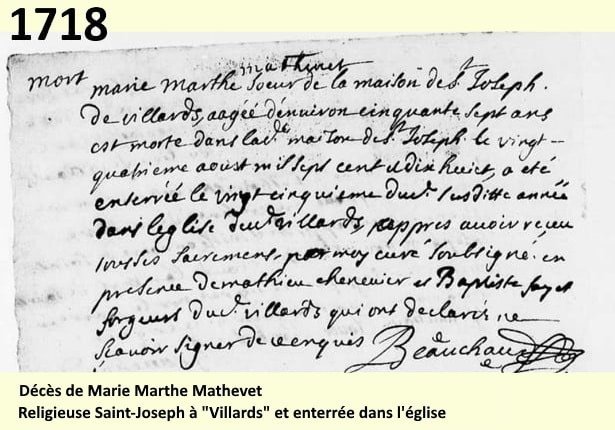 1718
mathevet
mort marie marthe soeur de la maison de st Joseph
de villards, aagée d'enuiron cinquante sept ans
est morte dans lad.e maison de st Joseph le vingt-
quatrieme aoust mil sept cent et dix huict, a eté
enterrée le vingt cinquieme du ct susditte année
dans leglise du ct villards, appres auoir reçeu
tous ses sacremens par moy curé soubsigné. en
presence de mathieu chenevier et Baptiste
du ct villards qui ont declarés ne
sçauoir signer de ce enquis Beauchau
Décès de Marie Marthe Mathevet
Religieuse Saint-Joseph à "Villards" et enterrée dans l'église